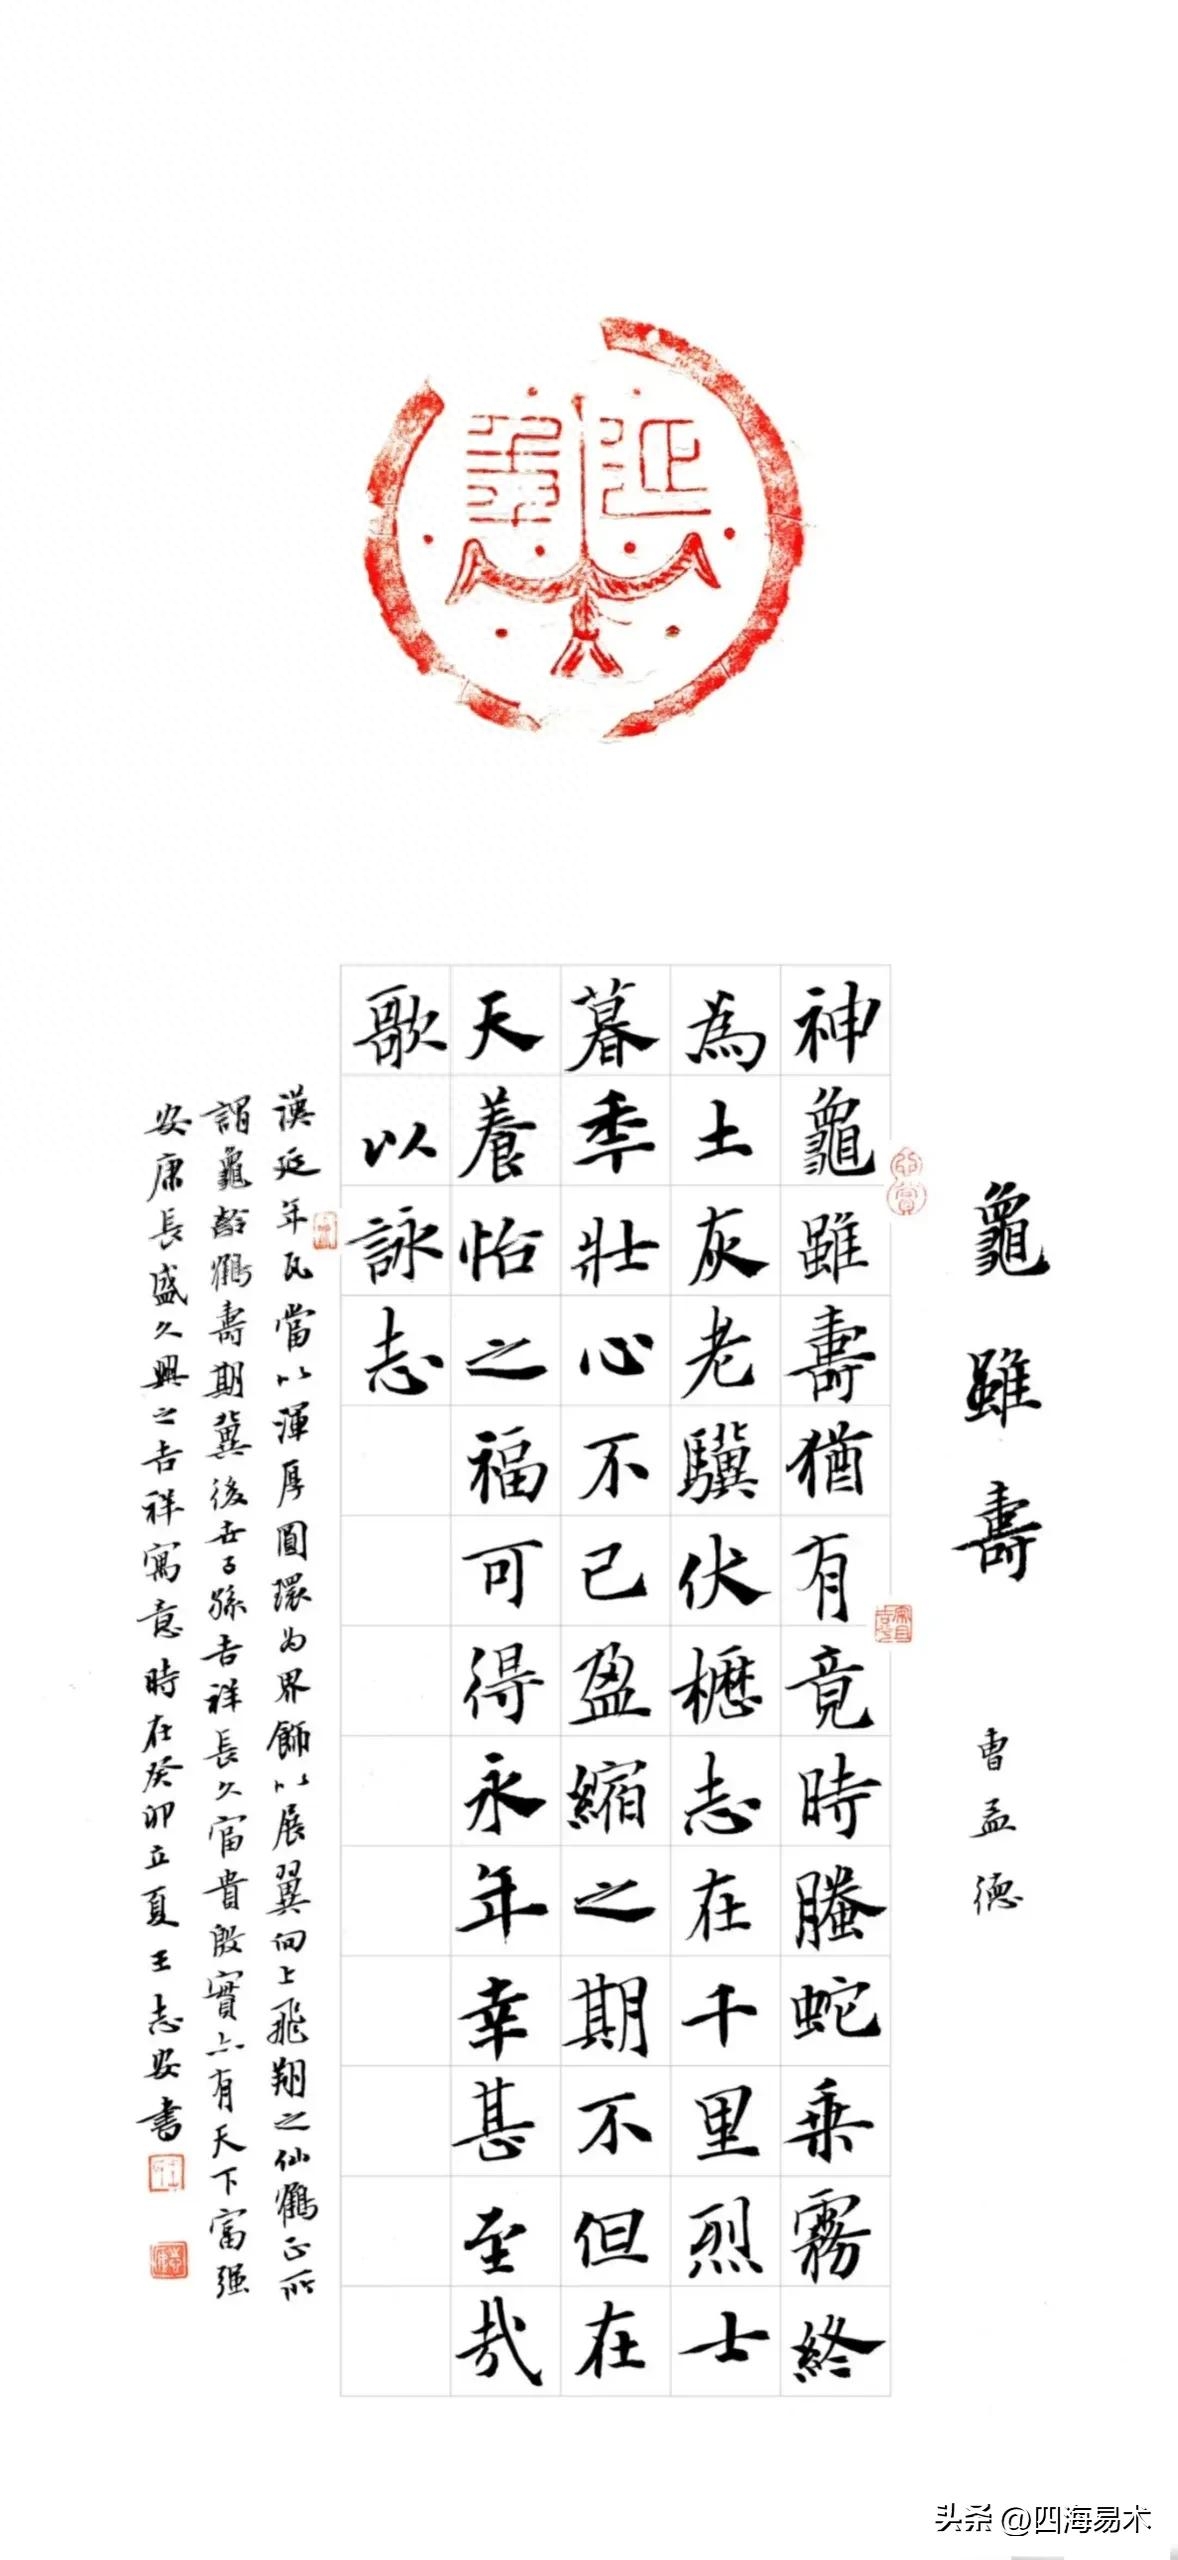 延年
龜雖壽 曹孟德
神龜雖壽猶有竟時螣蛇乘霧終
為土灰老驥伏櫪志在千里烈士
暮秊壯心不已盈縮之期不但在
天養怡之福可得永年幸甚至哉
歌以詠志
漢延年瓦當以渾厚圓環为界飾以展翼向上飛翔之仙鶴正所
謂龜齡鶴壽期冀後世子孫吉祥長久富貴殷實亦有天下富强
安康長盛久興之吉祥寓意時在癸卯立夏王志安書
头条 @四海易木